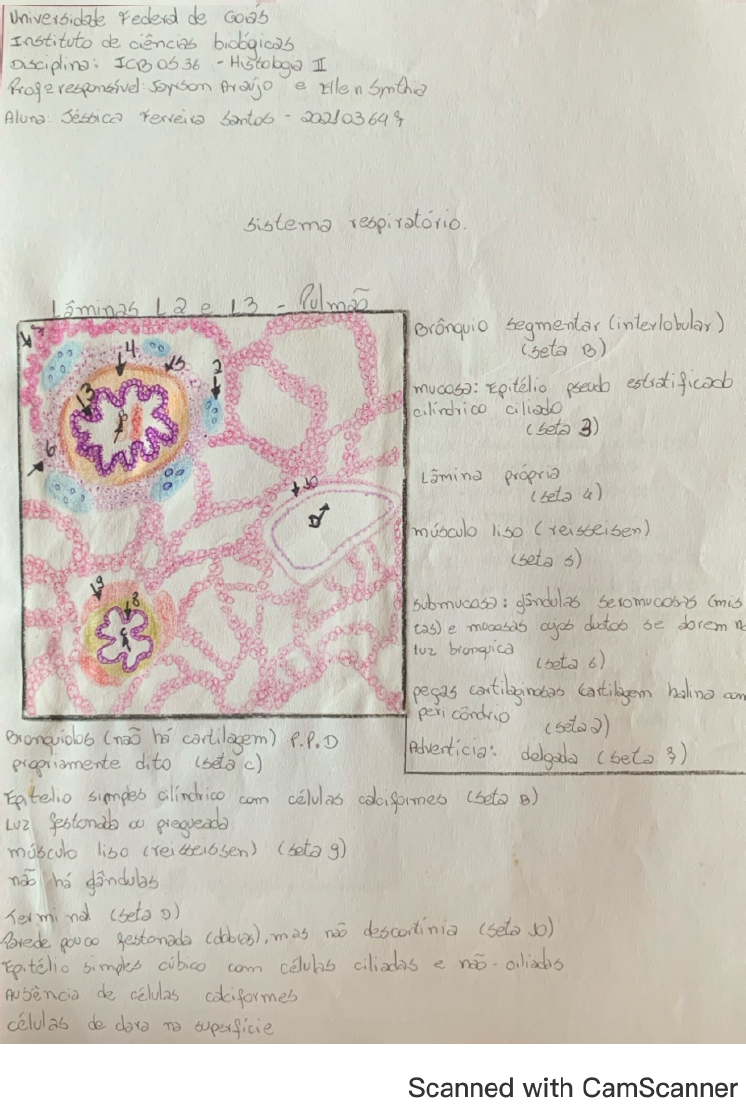 Universidade Federal de Goiás
Instituto de ciências biológicas
Disciplina: ICB0536 - Histologia II
Profº responsível: Joyson Araújo e Ellen Synthia
Aluna: Jéssica Ferreira Santos - 20210364
sistema respiratório.
Lâminas L2 e L3 - Pulmão
Brônquio segmentar (interlobular)
(seta B)
mucosa: Epitélio pseudo estratificado
cilíndrico ciliado
(seta 3)
Lâmina própria
(seta 4)
músculo liso (reisseisen)
(seta 5)
submucosa: glândulas seromucosas (mis
tas) e mocosas cujos dutos se dorem n
luz bronqica
(seta 6)
peças cartilaginosas (artilagem halina com
pericôndrio
(seta 2)
Adverticia: delgada (seta 7)
7
4
5
2
3
B
6
10
D
9
8
c
Bronquiolos (não há cartilagem) P.P.D
propriamente dito (seta c)
Epitelio simples cilíndrico com células caliciformes (seta B)
Luz festonada ou pregueada
músculo liso (reisseissen) (seta 9)
não há glândulas
Terminal (seta D)
Parede pouco festonada (dobras), mas não descortínia (seta 10)
Epitélio simples cúbico com células ciliadas e não-ciliadas
Ausência de células caliciformes
células de clara na superfície
Scanned with CamScanner